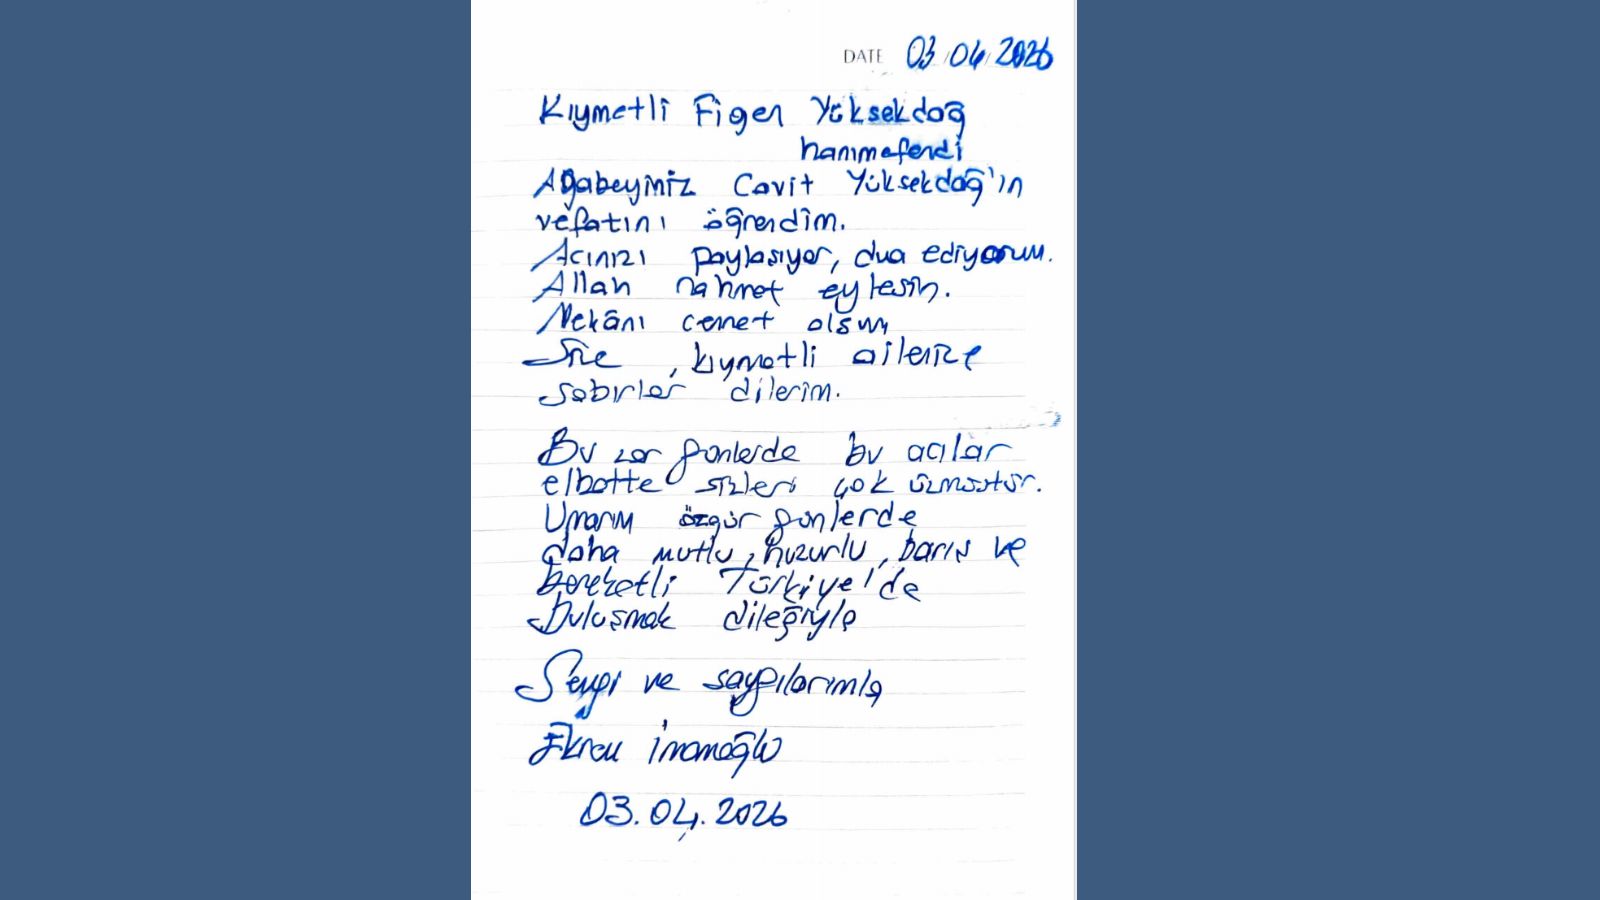 DATE 03/04/2026
Kıymetli Figen Yüksekdağ
hanımefendi
Ağabeyiniz Cavit Yüksekdağ'ın
vefatını öğrendim.
Acınızı paylaşıyor, dua ediyorum.
Allah rahmet eylesin.
Mekânı cennet olsun
Size, kıymetli ailenize
sabırlar dilerim.
Bu zor günlerde bu acılar
elbette sizleri çok üzmüştür.
Umarım özgür günlerde
daha mutlu, huzurlu, barış ve
bereketli Türkiye'de
Buluşmak dileğiyle
Sevgi ve saygılarımla
Ekrem İmamoğlu
03.04.2026